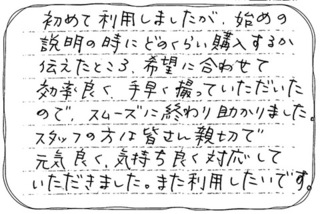 初めて利用しましたが、始めの
説明の時にどのくらい購入するか
伝えたところ、希望に合わせて
効率良く、手早く撮っていただいた
ので、スムーズに終わり助かりました。
スタッフの方は皆さん親切で
元気良く、気持ち良く対応して
いただきました。また利用したいです。